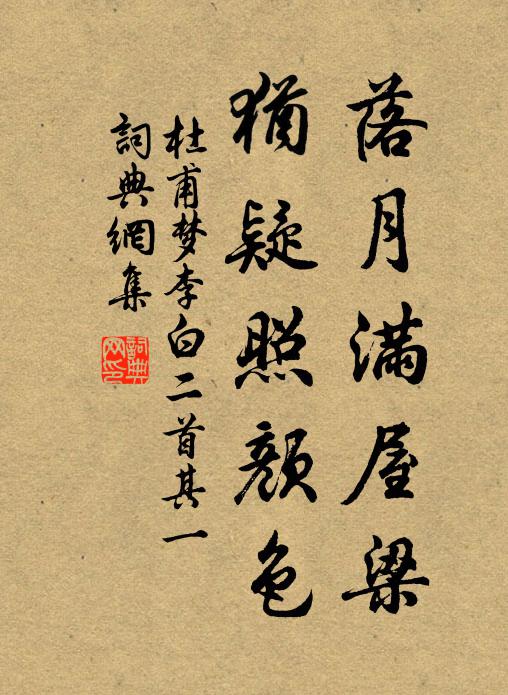 落月滿屋梁
猶疑照顏色
杜甫梦李白二首其一
詞典網集
詞典网印